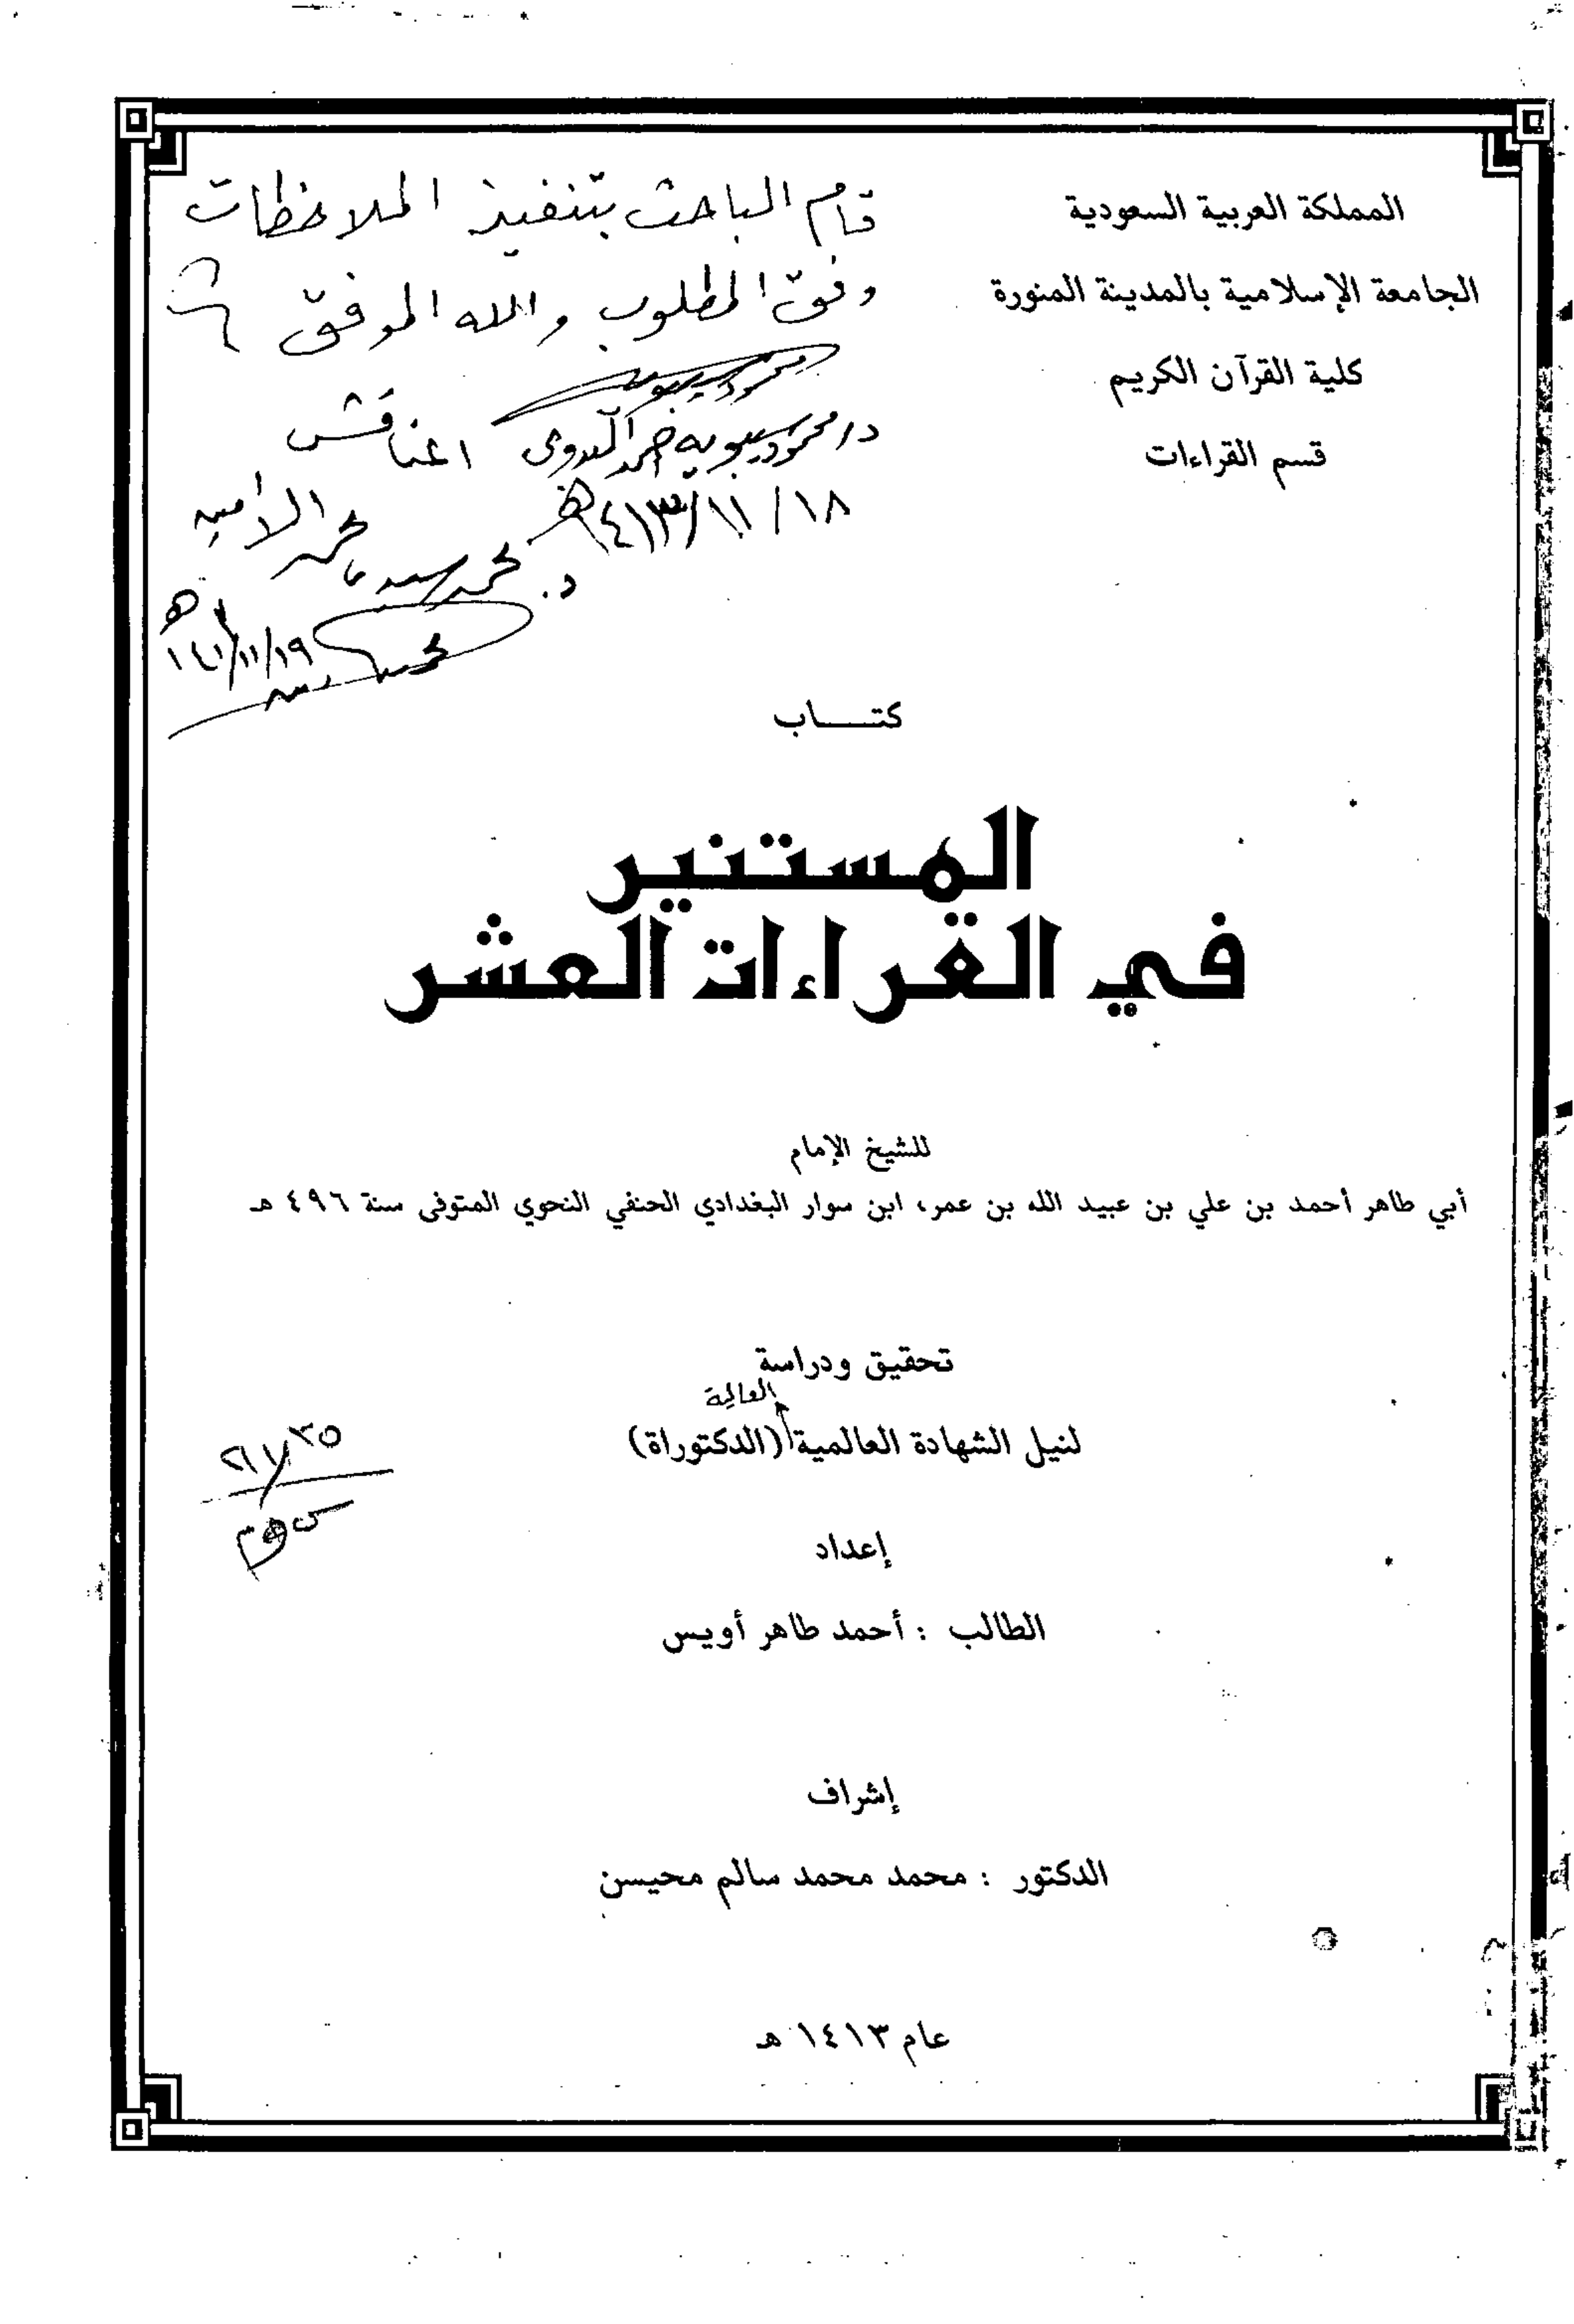 المملكة العربية السعودية
الجامعة الإسلامية بالمدينة المنورة
كلية القرآن الكريم
قسم القراءات
قام الباحث بتنفيذ الملاحظات
وفق المطلوب والله الموفق
د/ محمود سيبويه أحمد البدوى المناقش
١٨/١١/١٤١٣هـ
د. محمد سيدي محمد الأمين
كتـــاب
المستنير
في القراءات العشر
للشيخ الإمام
أبي طاهر أحمد بن علي بن عبيد الله بن عمر، ابن سوار البغدادي الحنفي النحوي المتوفى سنة ٤٩٦ هـ
تحقيق ودراسة
العالية
لنيل الشهادة العالمية (الدكتوراة)
إعداد
الطالب : أحمد طاهر أويس
إشراف
الدكتور : محمد محمد سالم محيسن
عام ١٤١٣ هـ